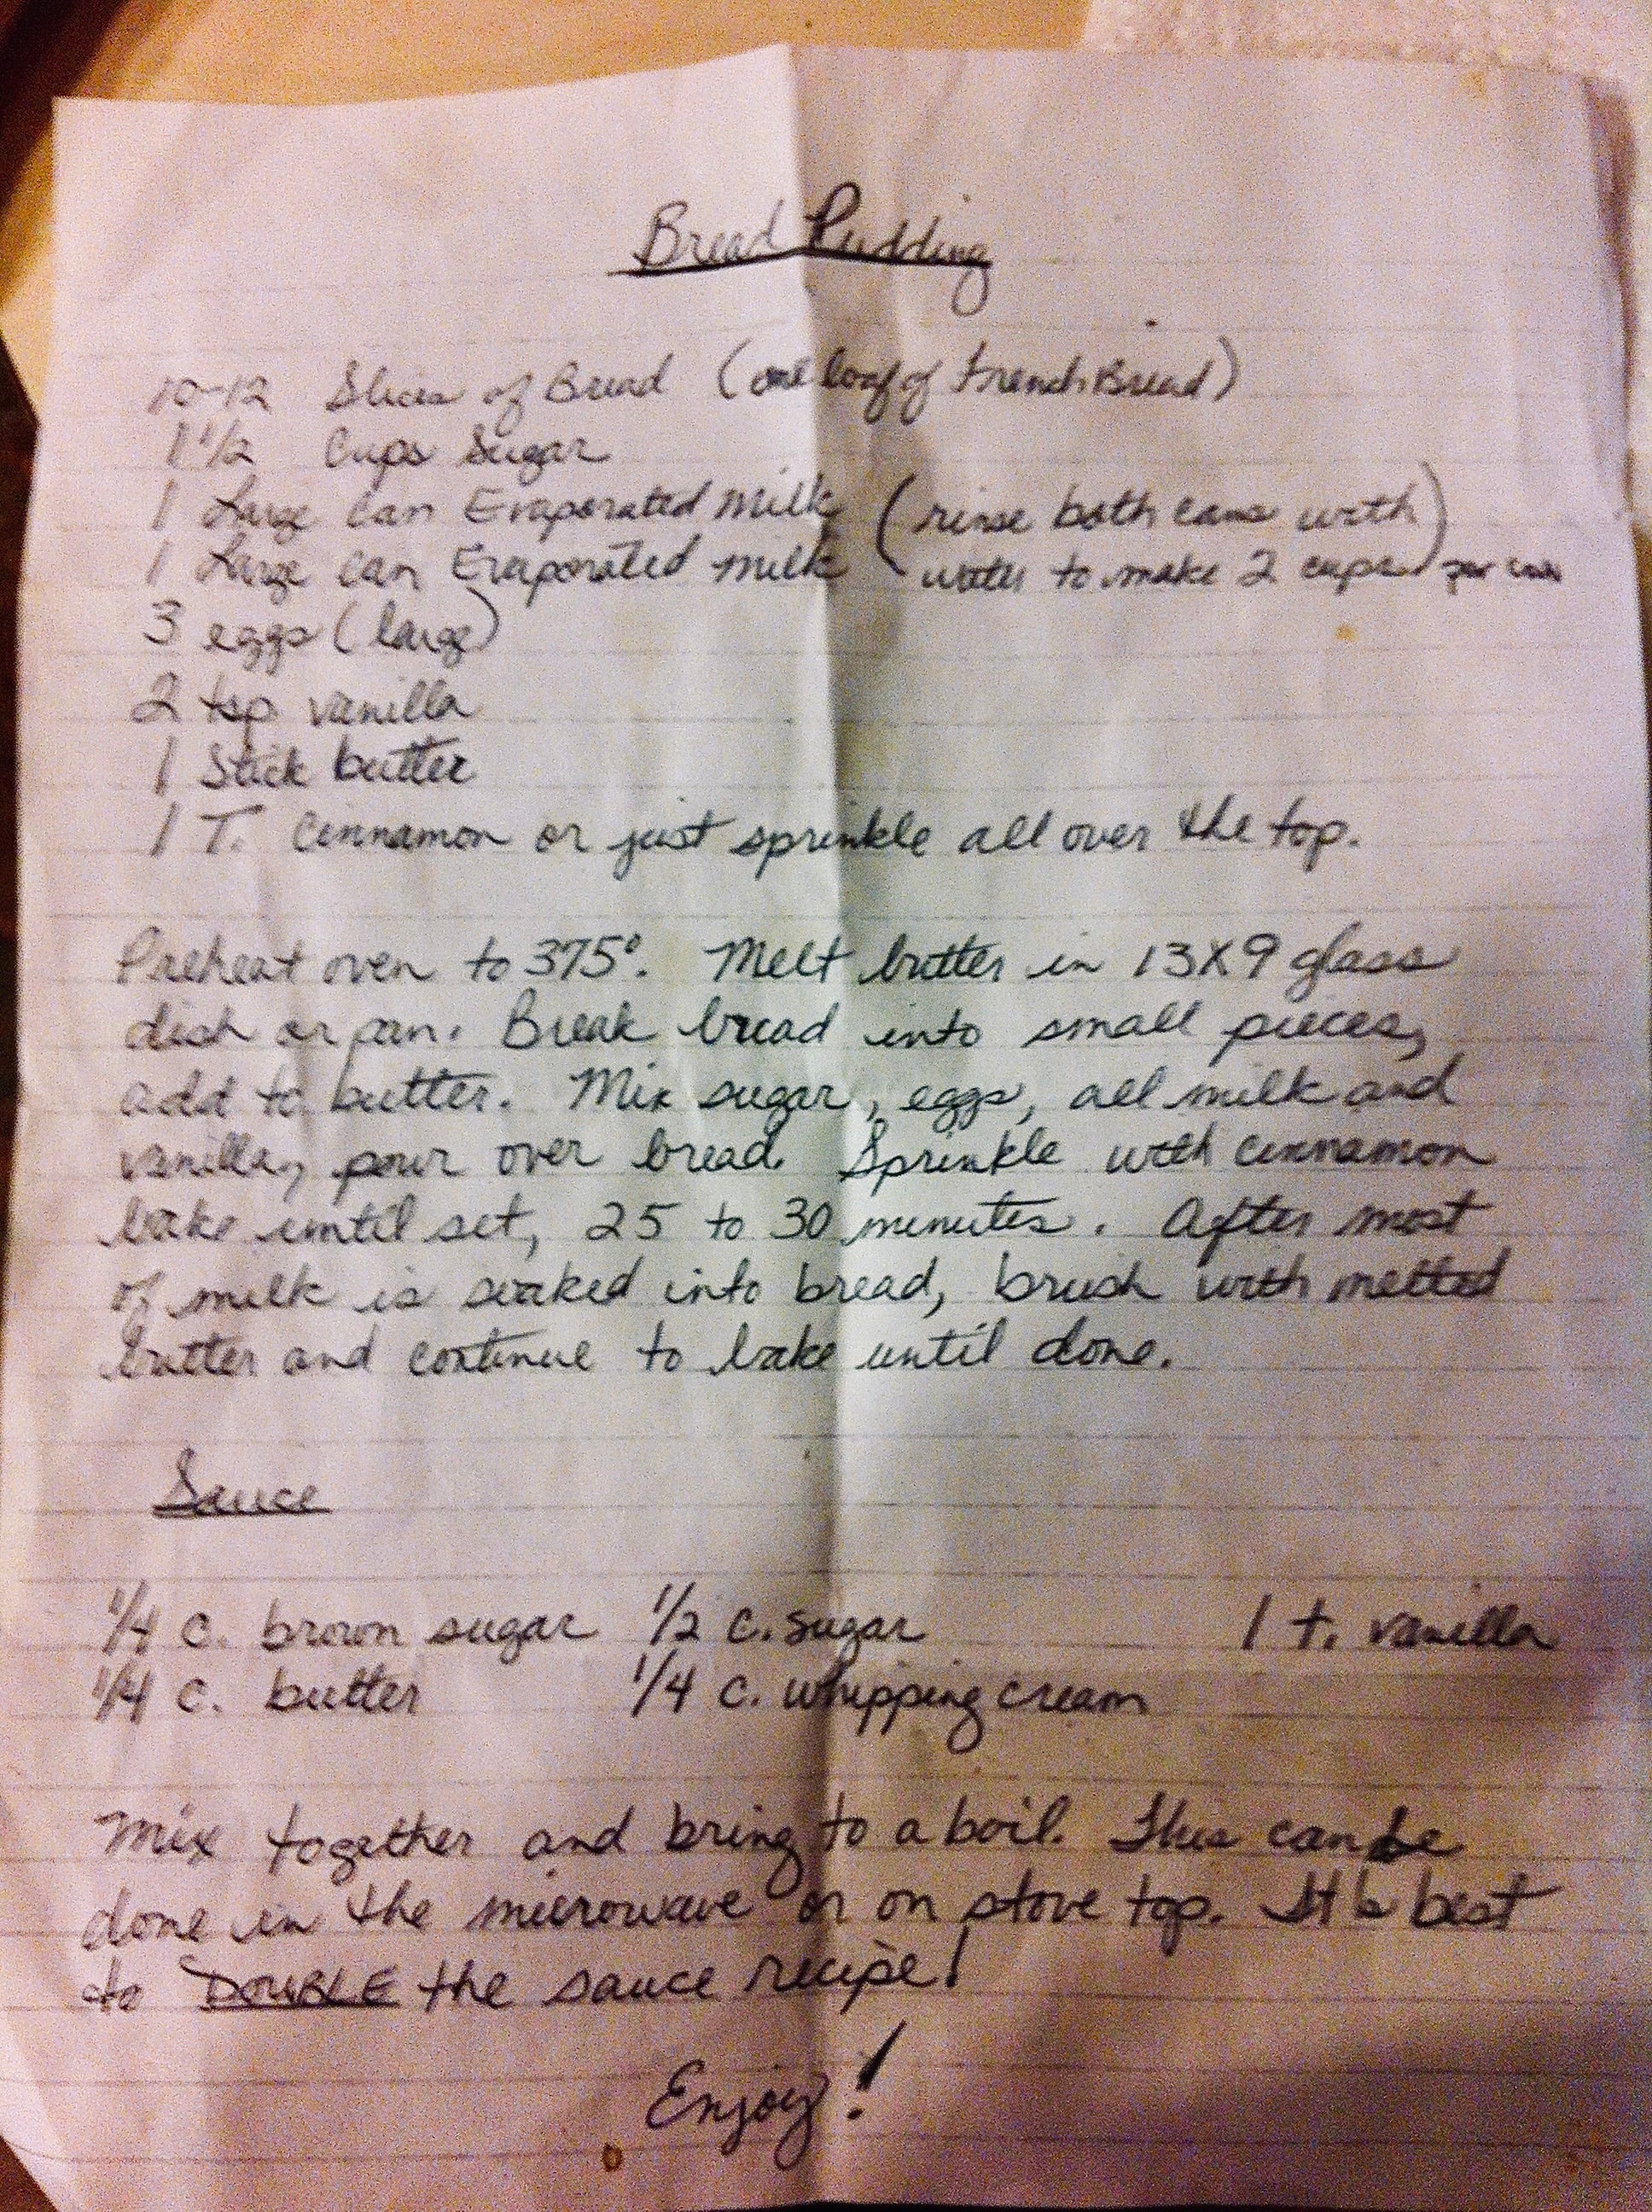 Bread Pudding
10-12 Slices of Bread (one loaf of French Bread)
1 1/2 Cups Sugar
1 Large Can Evaporated Milk (rinse both cans with
1 Large Can Evaporated Milk water to make 2 cups) per can
3 eggs (large)
2 tsp vanilla
1 Stick butter
1 T. Cinnamon or just sprinkle all over the top.
Preheat oven to 375°. Melt butter in 13X9 glass
dish or pan. Break bread into small pieces,
add to butter. Mix sugar, eggs, all milk and
vanilla, pour over bread. Sprinkle with cinnamon
bake until set, 25 to 30 minutes. After most
of milk is soaked into bread, brush with melted
butter and continue to bake until done.
Sauce
1/4 c. brown sugar 1/2 c. sugar 1 t. vanilla
1/4 c. butter 1/4 c. whipping cream
Mix together and bring to a boil. This can be
done in the microwave or on stove top. It is best
to DOUBLE the sauce recipe!
Enjoy!